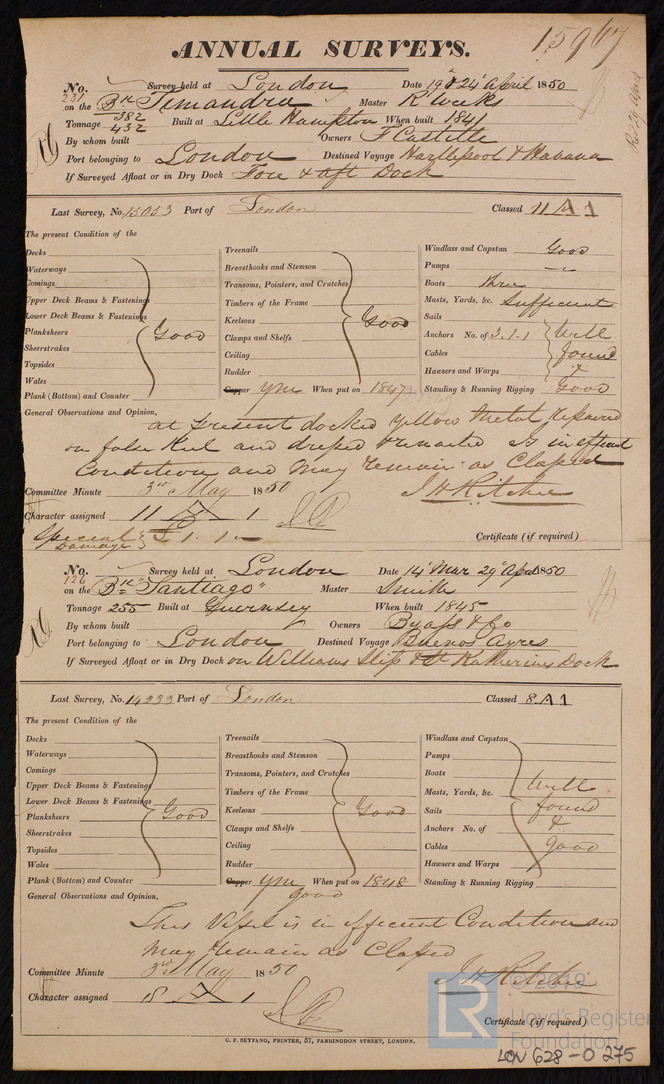 15967
ANNUAL SURVEYS.
No. 231 Survey held at London Date 19 & 24 April 1850
on the Bk Timandra Master R Weeks
Tonnage 382 432 Built at Little Hampton When built 1841
By whom built Owners F Castelle
Port belonging to London Destined Voyage Hartlepool & Havana
If Surveyed Afloat or in Dry Dock Fore & aft Dock
Last Survey, No. 15053 Port of London Classed 11 A 1
The present Condition of the
Decks
Waterways
Comings
Upper Deck Beams & Fastenings
Lower Deck Beams & Fastenings
Planksheers
Sheerstrakes
Topsides
Wales
Plank (Bottom) and Counter
Good
Treenails
Breasthooks and Stemson
Transoms, Pointers, and Crutches
Timbers of the Frame
Keelsons
Clamps and Shelfs
Ceiling
Rudder
Good
Copper YM When put on 1847
Windlass and Capstan Good
Pumps "
Boats three
Masts, Yards, &c. Sufficient
Sails
Anchors No. of 3.1.1
Cables
Hawsers and Warps
Standing & Running Rigging
Well
found
&
Good
General Observations and Opinion,
at present docked yellow Metal repaired
on false Keel and
Condition and may remain as Classed
Committee Minute 3rd May 1850
J H Ritchie
Character assigned 11 A 1
Special Damage £ 1.1.-
Certificate (if required)
No. 126 Survey held at London Date 14 Mar 29 April 1850
on the Bk "Santiago" Master Smith
Tonnage 255 Built at Guernsey When built 1845
By whom built Owners Byass & Co
Port belonging to London Destined Voyage Buenos Ayres
If Surveyed Afloat or in Dry Dock on Williams Slip & St Katherines Dock
Last Survey, No. 14233 Port of London Classed 8 A 1
The present Condition of the
Decks
Waterways
Comings
Upper Deck Beams & Fastenings
Lower Deck Beams & Fastenings
Planksheers
Sheerstrakes
Topsides
Wales
Plank (Bottom) and Counter
Good
Treenails
Breasthooks and Stemson
Transoms, Pointers, and Crutches
Timbers of the Frame
Keelsons
Clamps and Shelfs
Ceiling
Rudder
Good
Copper YM When put on 1848
good
Windlass and Capstan
Pumps
Boats
Masts, Yards, &c.
Sails
Anchors No. of
Cables
Hawsers and Warps
Standing & Running Rigging
Well
found
&
good
General Observations and Opinion,
This Vessel is in efficient Condition and
may remain as Classed
Committee Minute 3rd May 1850
J H Ritchie
Character assigned 8 A 1
Certificate (if required)
C. F. SEYFANG, PRINTER, 57, FARRINGDON STREET, LONDON.
LR © 2019
Lloyd's Register
Foundation
LON 628-0275